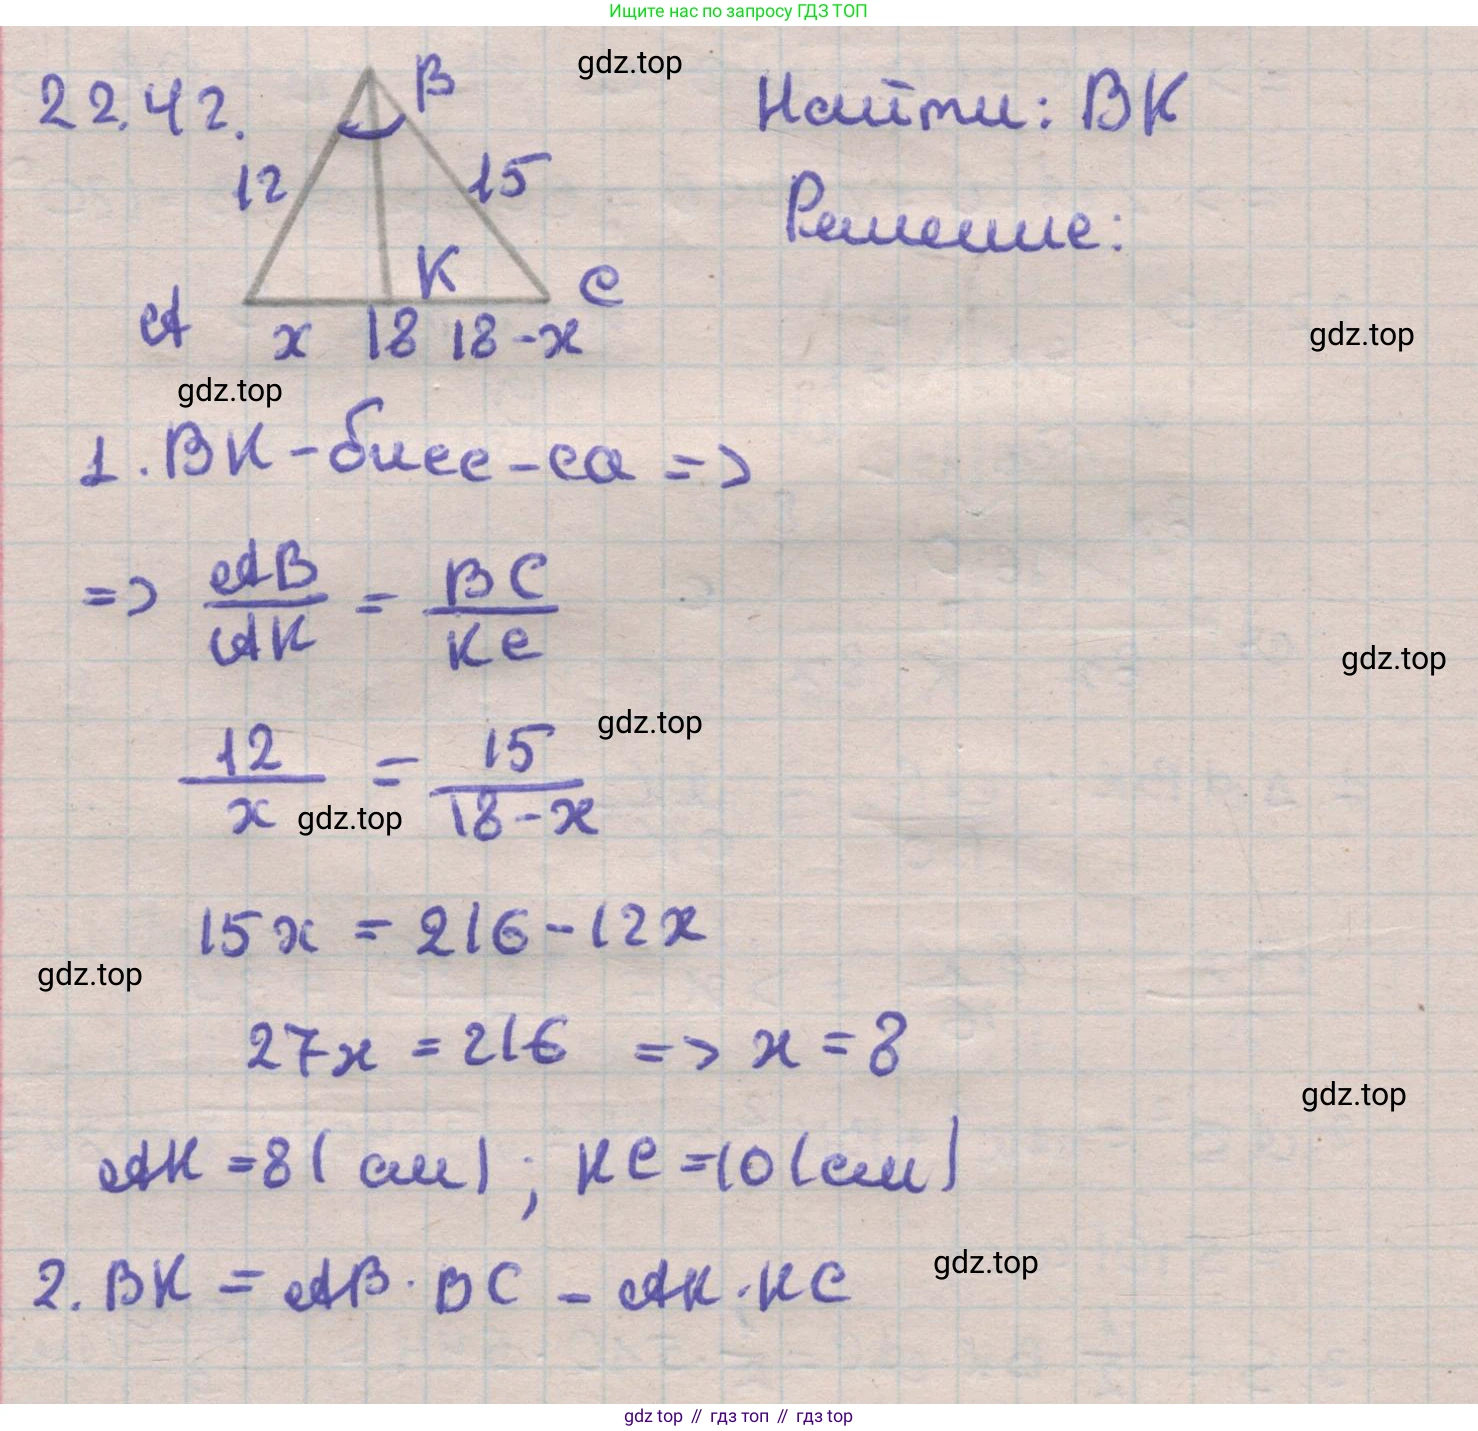 Ищите нас по запросу ГДЗ ТОП
gdz.top
22.42.
B
Найти: BK
12
15
Решение:
K
A
C
x
18
18-x
gdz.top
gdz.top
1. BK - бисс-са =>
=> AB/AK = BC/KC
gdz.top
gdz.top
12/x = 15/18-x
gdz.top
15x = 216 - 12x
gdz.top
27x = 216 => x = 8
gdz.top
AK = 8 (см); KC = 10 (см)
2. BK = AB · BC - AK · KC
gdz.top
gdz top // гдз топ // гдз top